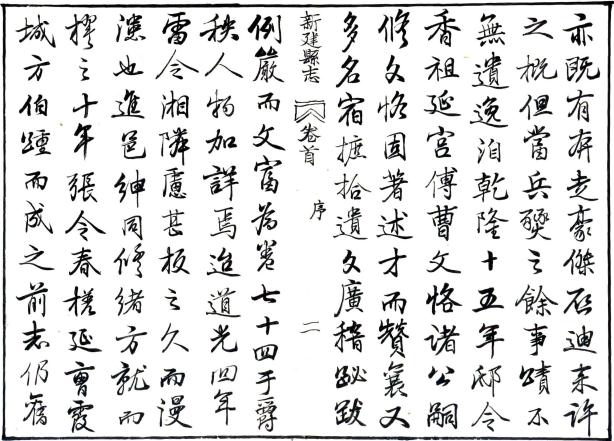 亦既有奔走豪傑啟迪來許
之概但當兵燹之餘事蹟不
無遺逸洎乾隆十五年邸令
香祖延宮傅曹文恪諸公嗣
修文恪固著述才而贊襄又
多名宿摭拾遺文廣稽祕跋
新建縣志 卷首 序 二
例嚴而文富為卷七十四于爵
秩人物加詳焉迨道光四年
雷令湘隣慮其板之久而漫
漶也進邑紳同修緒方就而
權之十年張令春槎延曹霞
城方伯踵而成之前志仍舊